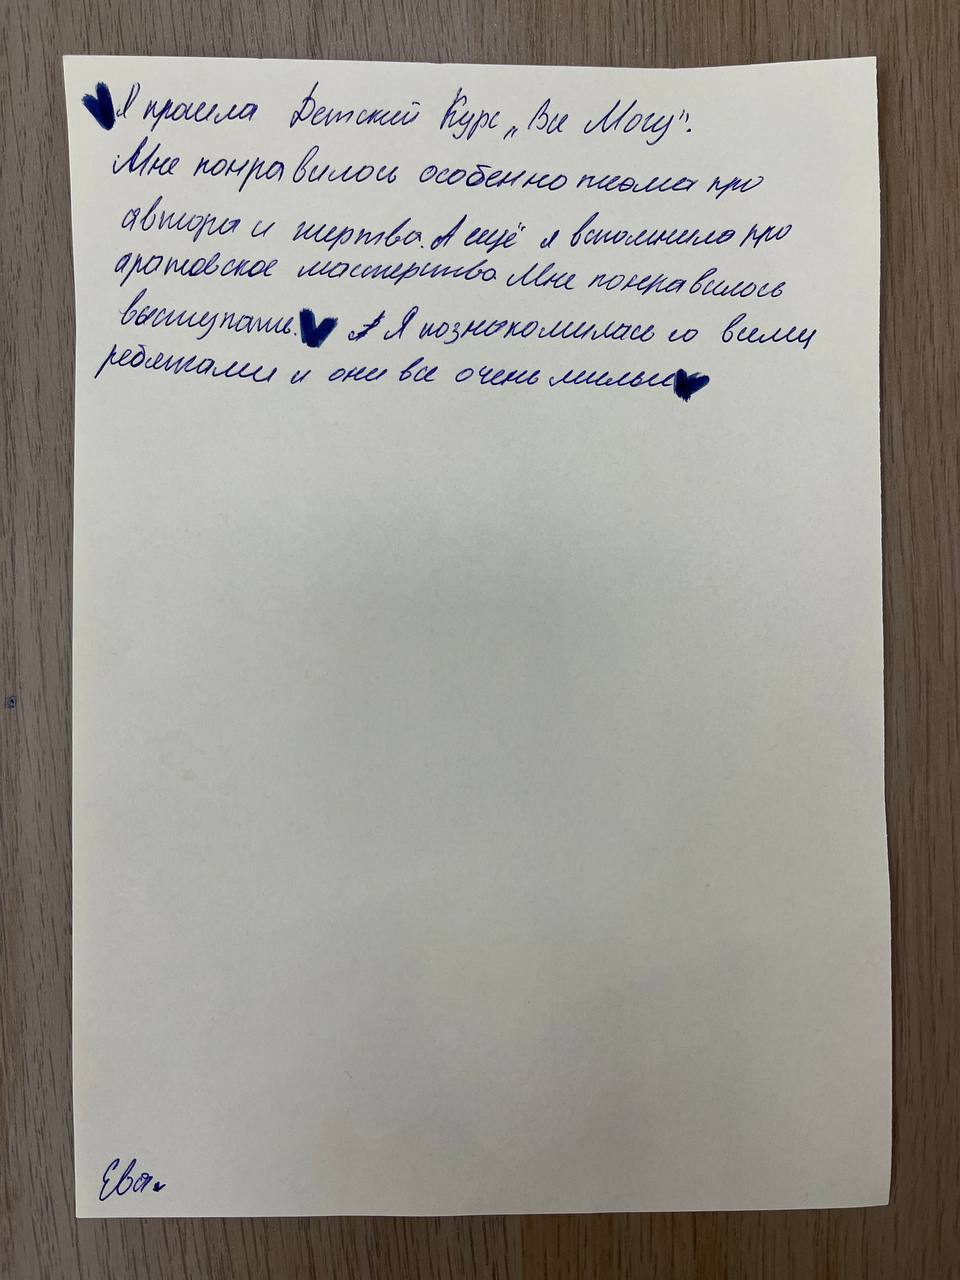 Я прошла Детский Курс „Все Могу".
Мне понравилось особенно тема про
автора и жертва. А ещё я вспомнила про
аратовское мастерство. Мне понравилось
выступать. Я познакомилась со всеми
ребятами и они все очень милые
Ева.